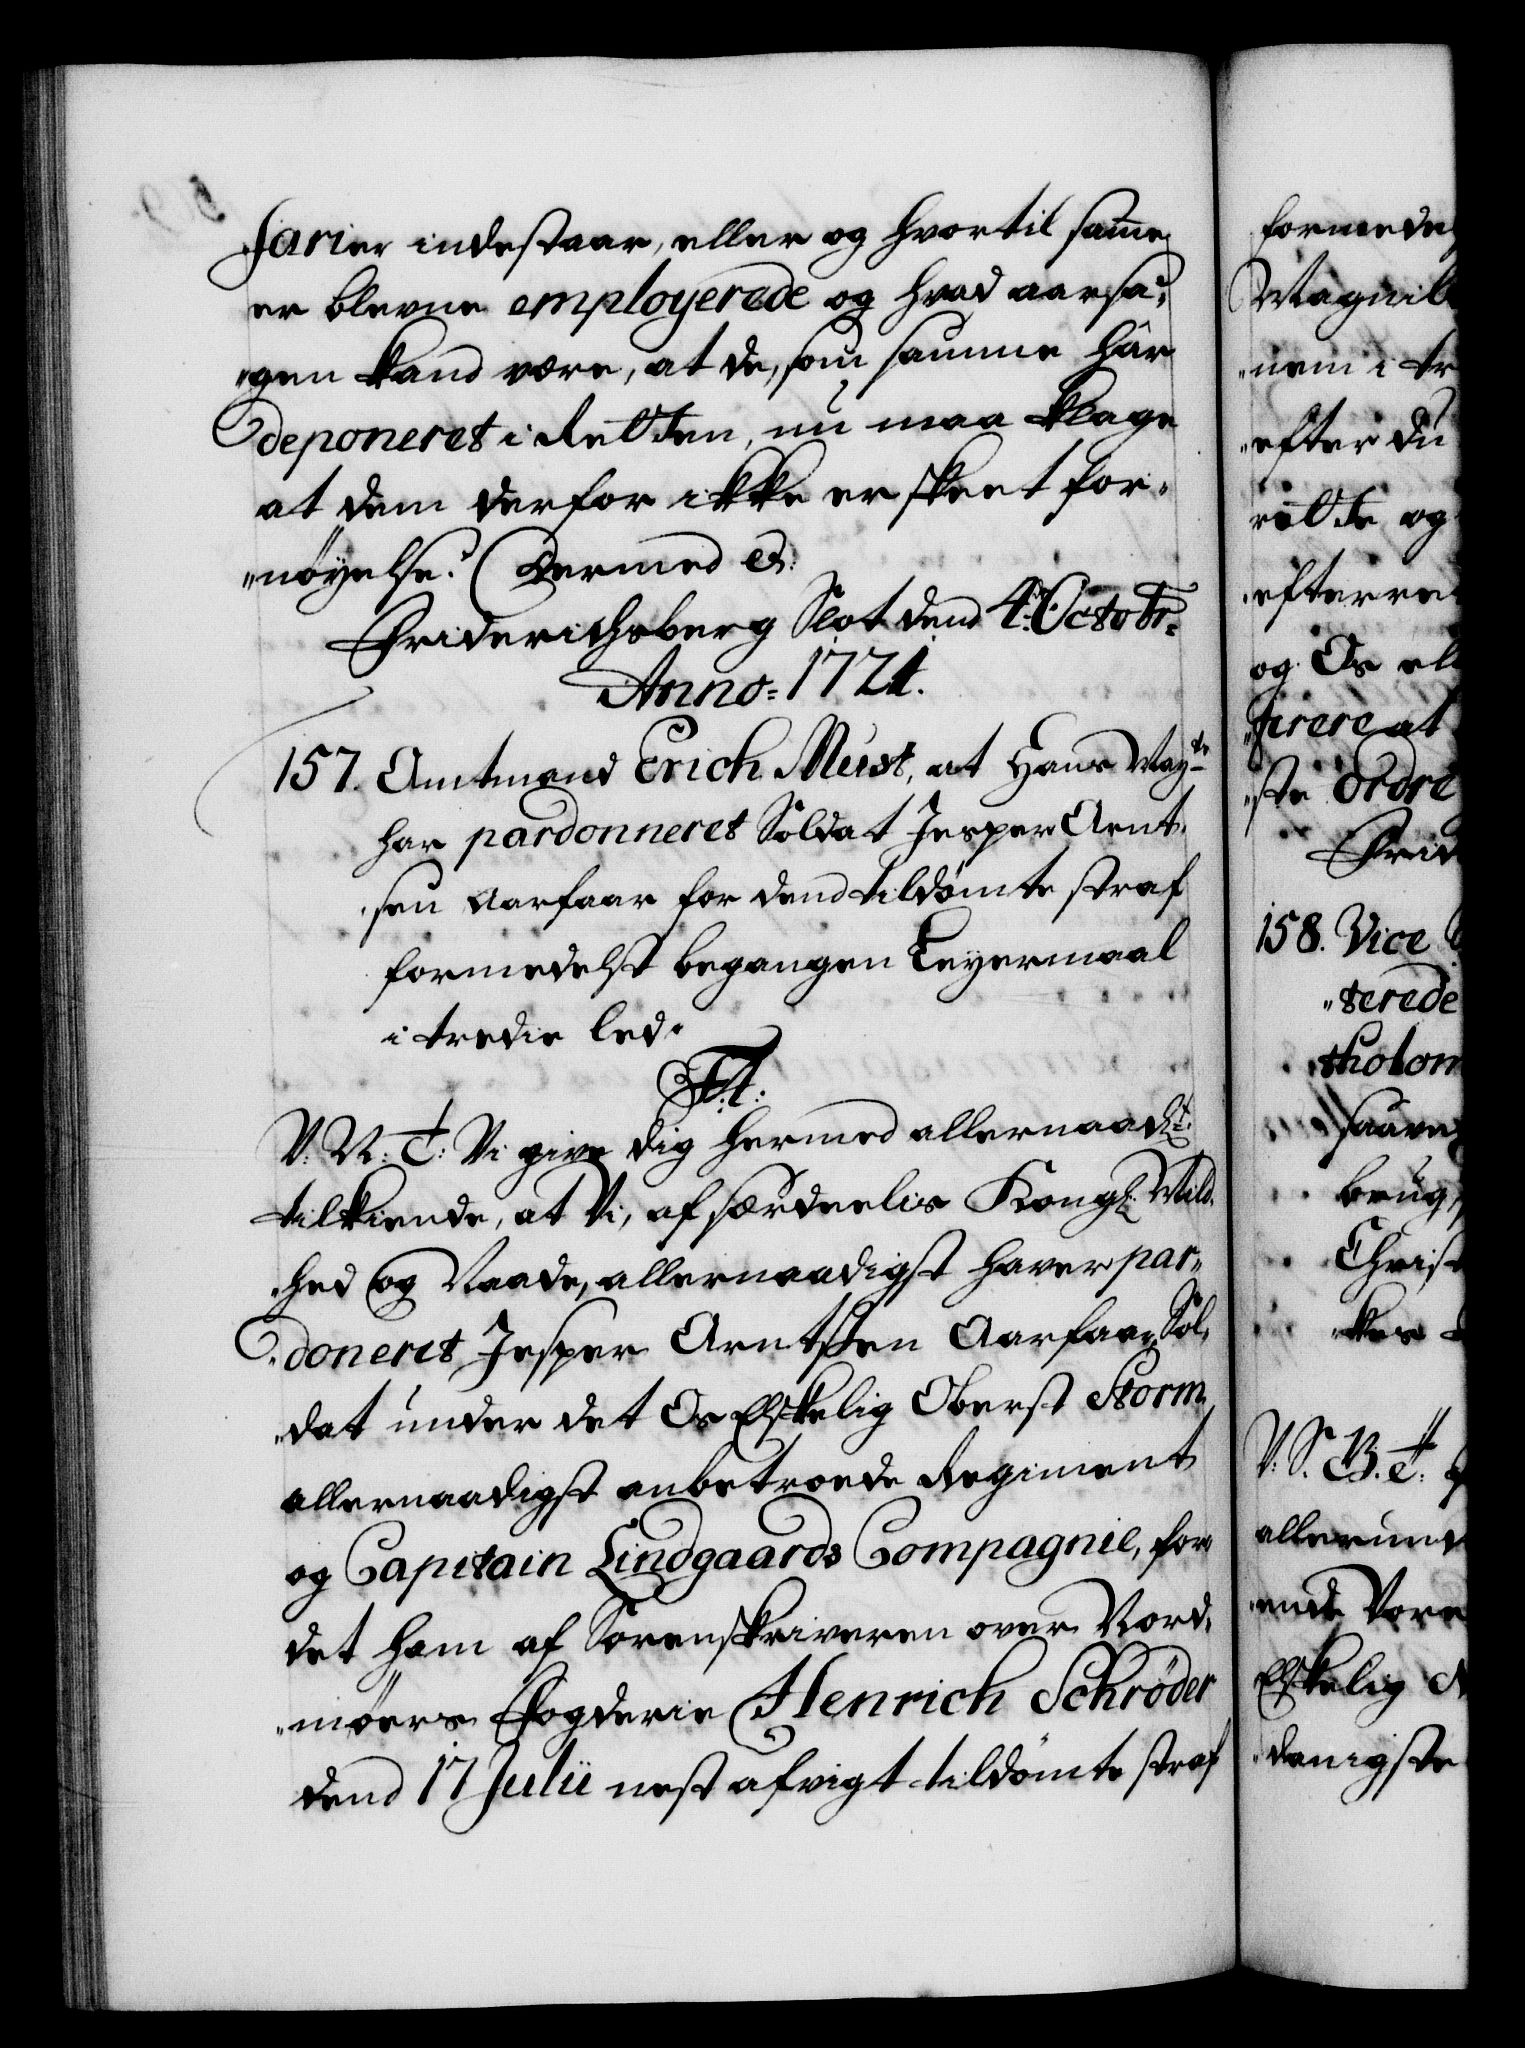 sarier indestaar, eller og hvortil same
er blevne employerede og hvad aarsa-
gen kand være, at de, som samme har
deponeret i Retten, nu maa klage
at dem derfor ikke er skeet for-
nöyelse? Dermed &:
Friderichsberg Slot dend 4: Octobr:
Anno: 1721.
157. Amtmand Erich Must, at Hans May:ts
har pardonneret Soldat Jesper Arnt-
sen Aarfaar for dend tildömte straf
formedelst begangen Leyermaal
i tredie led.
F: 4:
V: N: T: Vi give dig hermed allernaadigst
tilkiende, at Vi, af særdeelis Kongl: Mild-
hed og Naade, allernaadigst haver par-
doneret Jesper Arntsen Aarfaar, Sol-
dat under det Os Elskelig Oberst Storm
allernaadigst anbetroede Regiment
og Capitain Lindgaards Compagnie, for
det ham af Sorenskriveren over Nord-
möers Fogderie Henrich Schrøder
dend 17 Julii nest afvigt tildömte straf
formede
Magnil
nem i tr
efter du
rette og
efterre
og Os al
ferere at
ste Ordre
Frid
158. Vice
terede
tholom
saave
brug
Christ
kes
V: S. B. T:
allerund
ende Vore
Elskelig
danigste